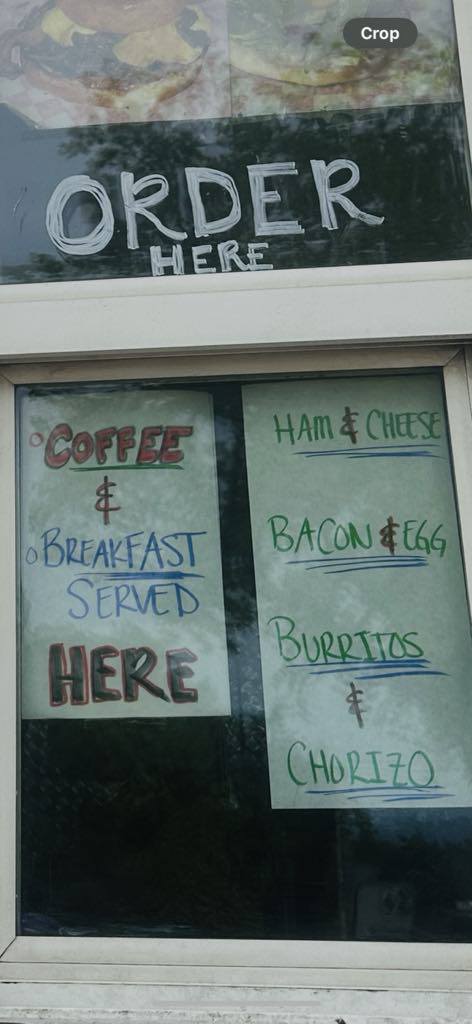 Crop
ORDER
HERE
COFFEE
&
BREAKFAST
SERVED
HERE
HAM & CHEESE
BACON & EGG
BURRITOS
&
CHORIZO